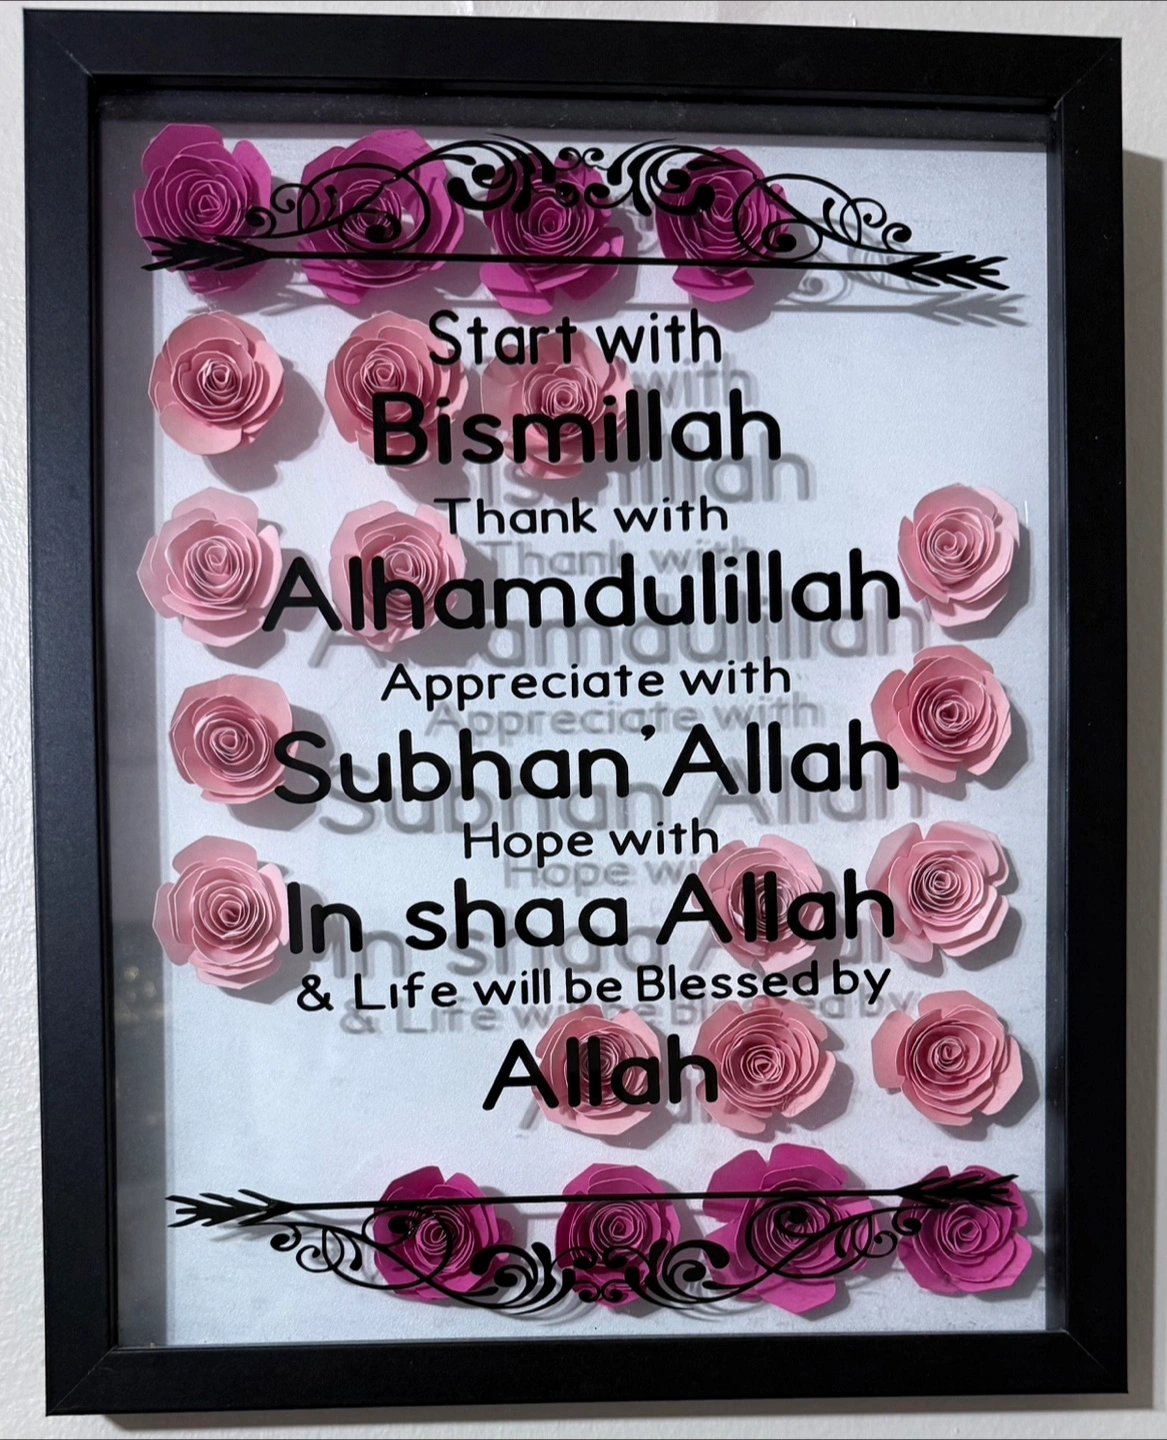 Start with
Bismillah
Thank with
Alhamdulillah
Appreciate with
Subhan'Allah
Hope with
In shaa Allah
& Life will be Blessed by
Allah